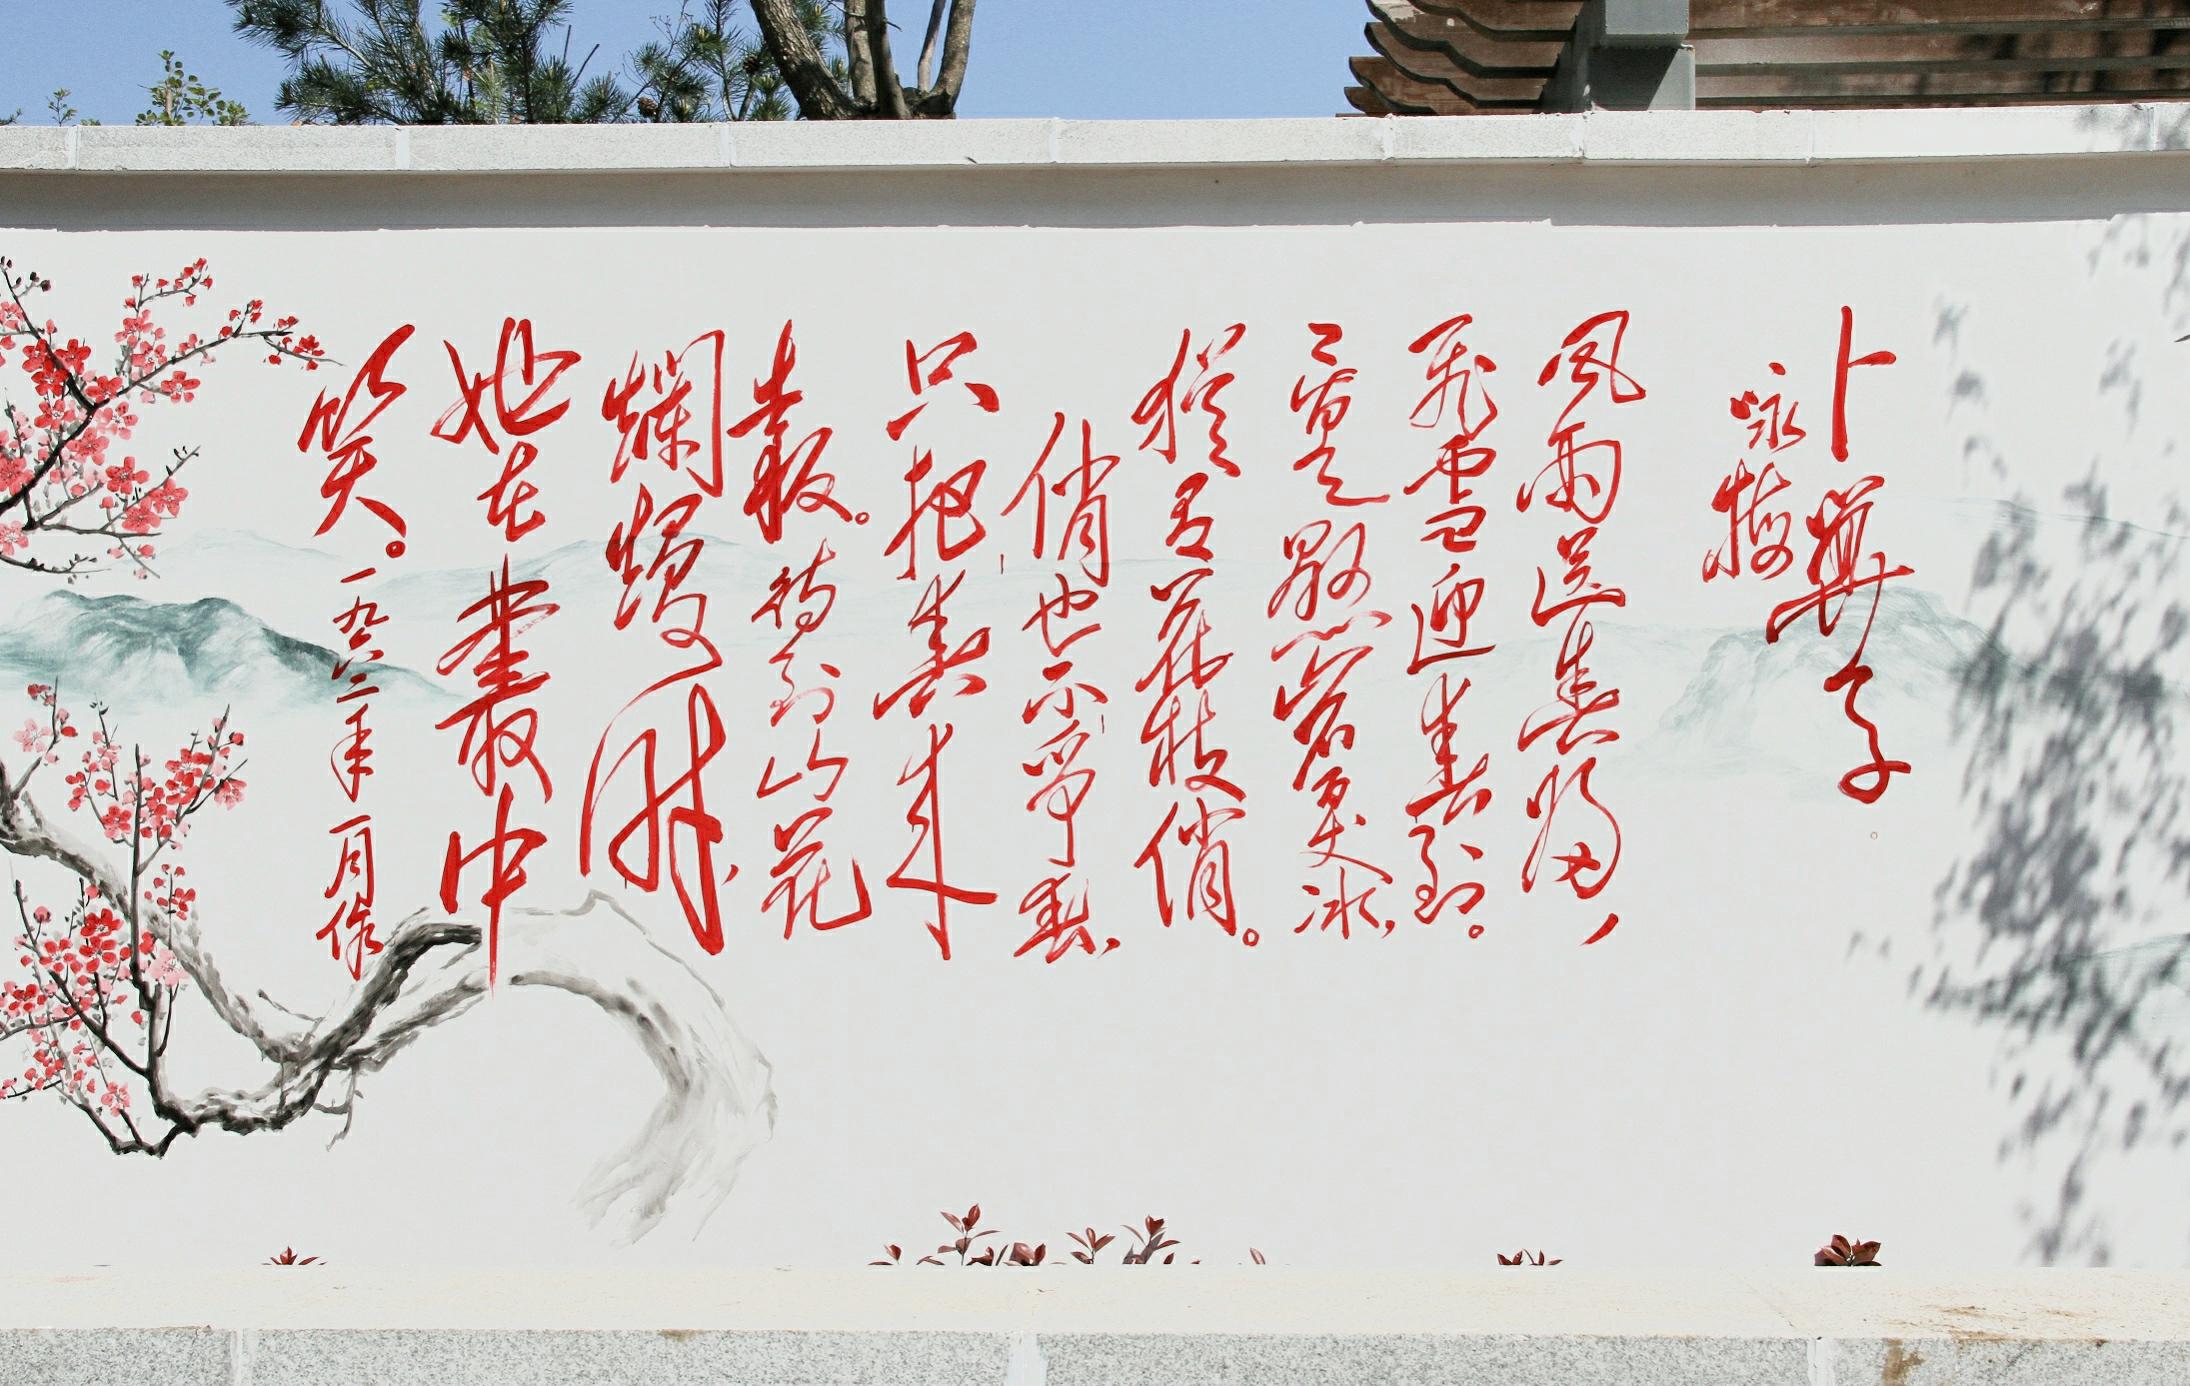 卜算子
咏梅
风雨送春归，
飞雪迎春到。
已是悬崖百丈冰，
犹有花枝俏。
俏也不争春，
只把春来
报。待到山花
烂熳时
她在丛中
笑。
一九六二年一月作